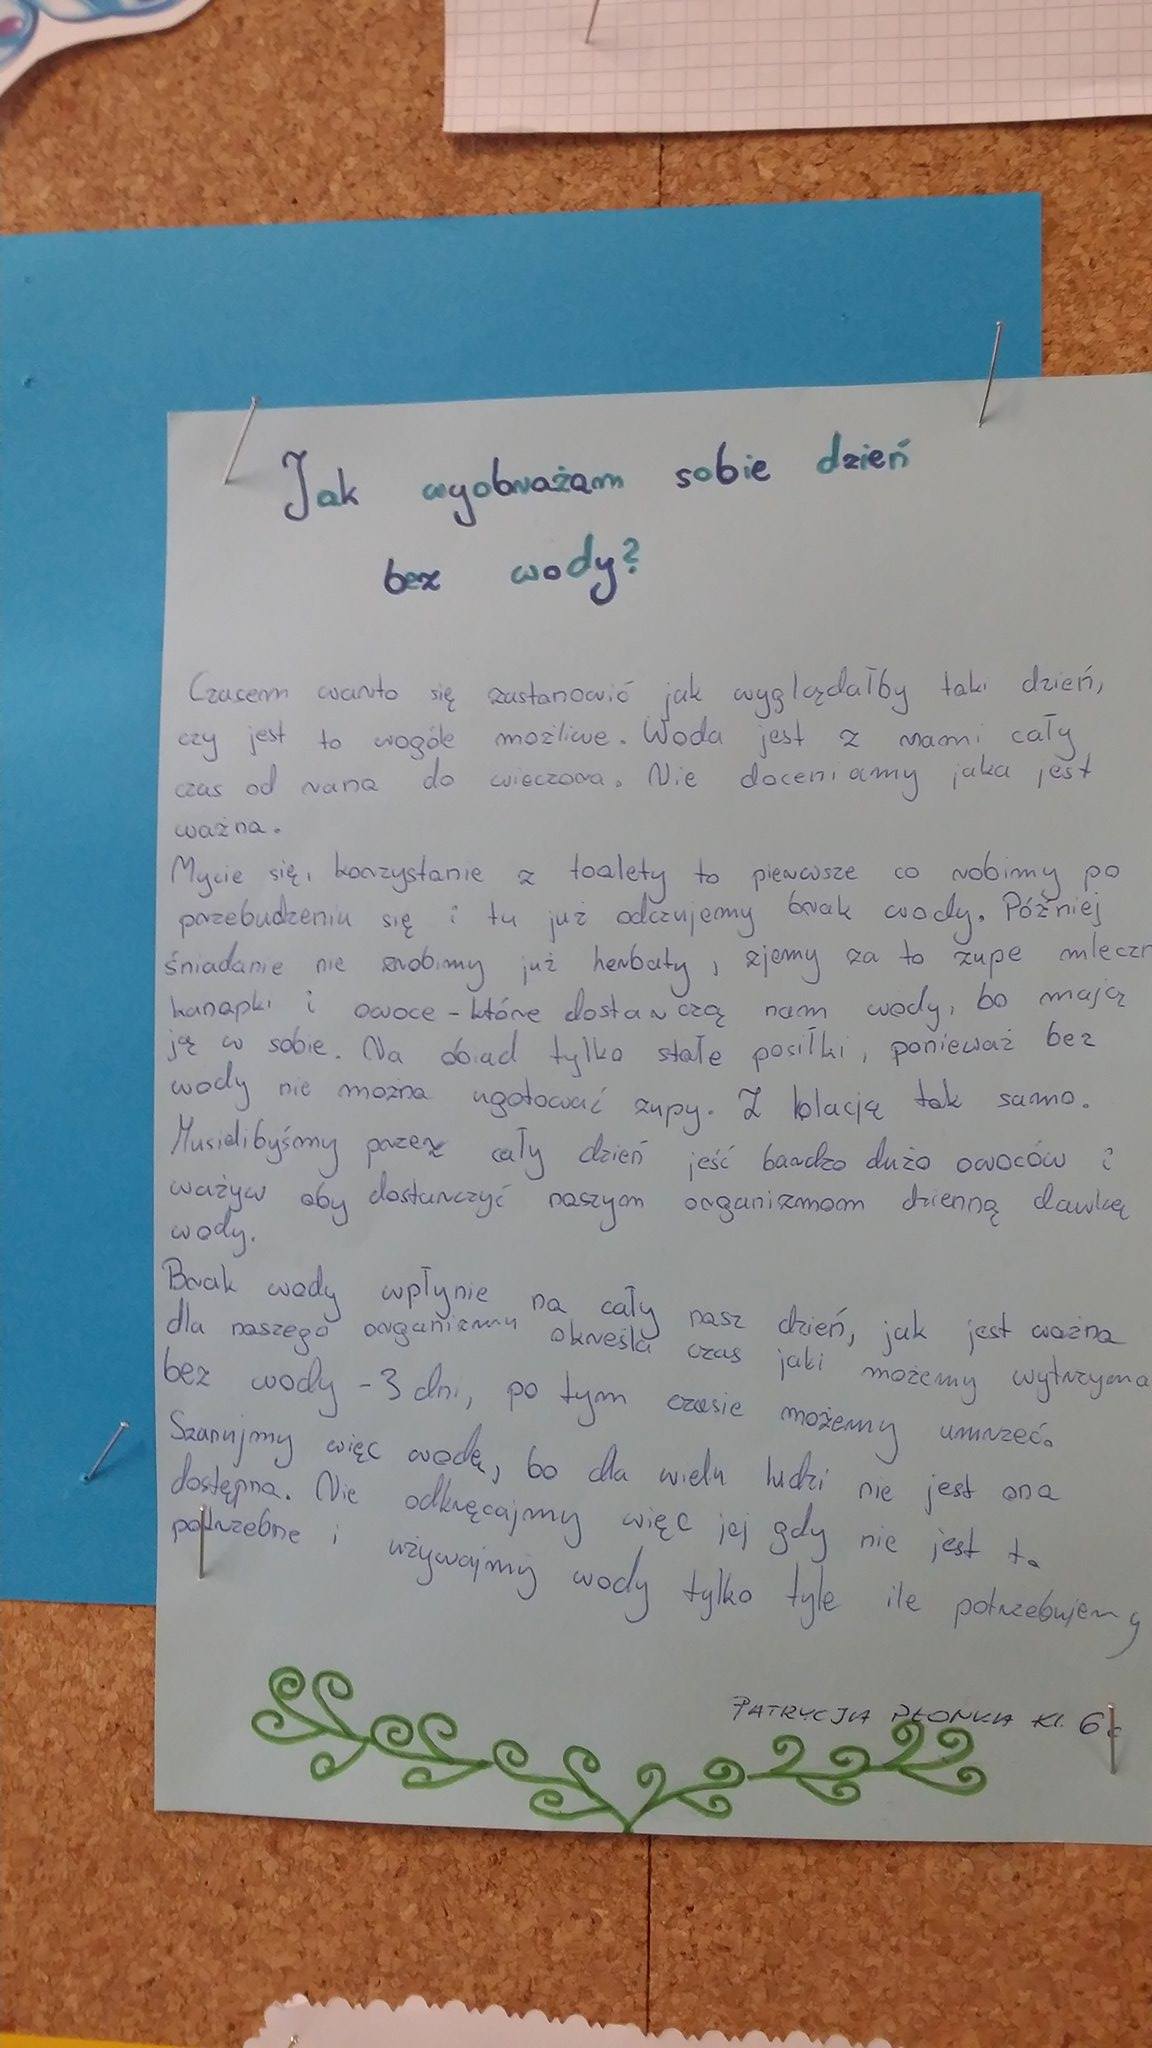 Jak wyobrażam sobie dzień
bez wody?
Czasem warto się zastanowić jak wyglądałby taki dzień,
czy jest to wogóle możliwe. Woda jest z nami cały
czas od rana do wieczora. Nie doceniamy jaka jest
ważna.
Mycie się, korzystanie z toalety to pierwsze co robimy po
przebudzeniu się i tu już odczujemy brak wody. Później
śniadanie nie zrobimy już herbaty, zjemy za to zupe mleczn
kanapki i owoce - które dostarczą nam wody, bo mają
ją w sobie. Na obiad tylko stałe posiłki, ponieważ bez
wody nie można ugotować zupy. Z kolacją tak samo.
Musielibyśmy przez cały dzień jeść bardzo dużo owoców i
warzyw aby dostarczyć naszym organizmom dzienną dawkę
wody.
Brak wody wpłynie na cały nasz dzień, jak jest ważna
dla naszego organizmu określa czas jaki możemy wytrzyma
bez wody - 3 dni, po tym czasie możemy umrzeć.
Szanujmy więc wodę, bo dla wielu ludzi nie jest ona
dostępna. Nie odkręcajmy więc jej gdy nie jest to
potrzebne i używajmy wody tylko tyle ile potrzebujemy
PATRYCJA PŁONKA Kl. 6